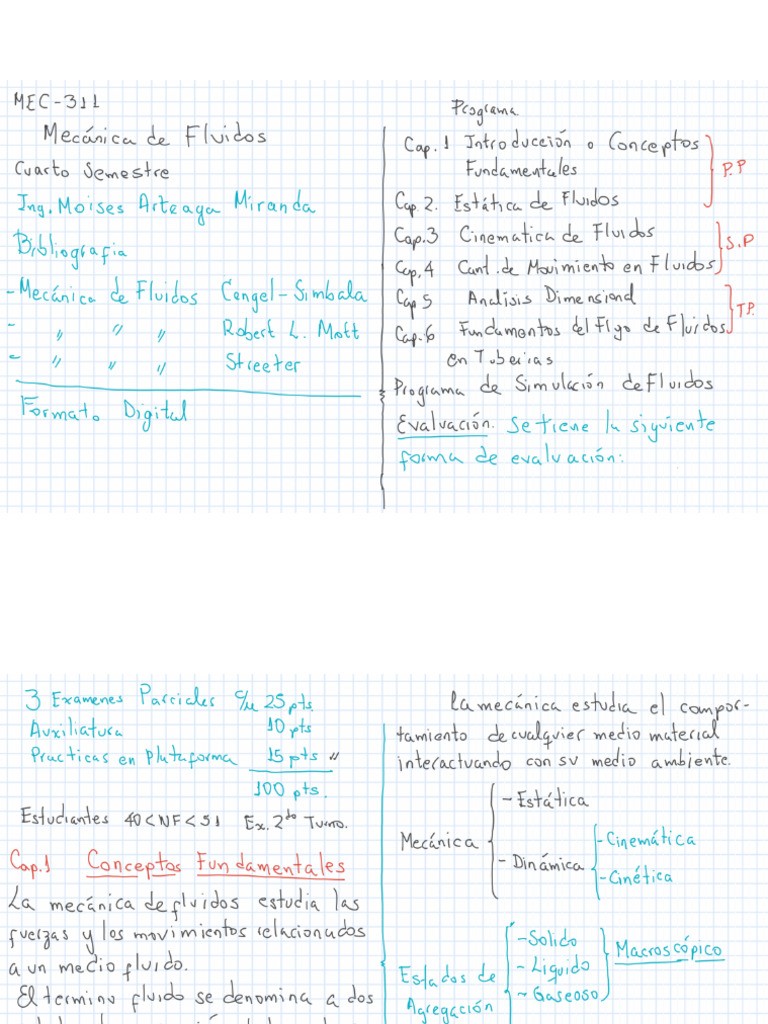 MEC-311
Mecánica de Fluidos
Cuarto Semestre
Ing. Moises Arteaga Miranda
Bibliografia
- Mecánica de Fluidos Cengel-Simbala
- " " " Robert L. Mott
- " " " Streeter
Formato Digital
Programa
Cap. 1 Introducción o Conceptos
Fundamentales
P.P
Cap 2. Estática de Fluidos
Cap.3 Cinematica de Fluidos
S.P
Cap, 4 Cant. de Movimiento en Fluidos
Cap 5 Analisis Dimensional
T.P.
Cap.6 Fundamentos del Flujo de Fluidos
en Tuberias
Programa de Simulación de Fluidos
Evaluación. Se tiene la siguiente
forma de evaluación:
3 Examenes Parciales c/u 25 pts
Auxiliatura 10 pts
Practicas en plataforma 15 pts "
100 pts.
Estudiantes 40<NF<51 Ex. 2do Turno.
Cap.1 Conceptos Fundamentales
La mecánica de fluidos estudia las
fuerzas y los movimientos relacionados
a un medio fluido.
El termino fluido se denomina a dos
La mecánica estudia el compor-
tamiento de cualquier medio material
interactuando con su medio ambiente.
Mecánica
- Estática
- Dinámica
- Cinemática
- Cinética
Estados de
Agregación
- Solido
- Liquido
- Gaseoso
Macroscópico